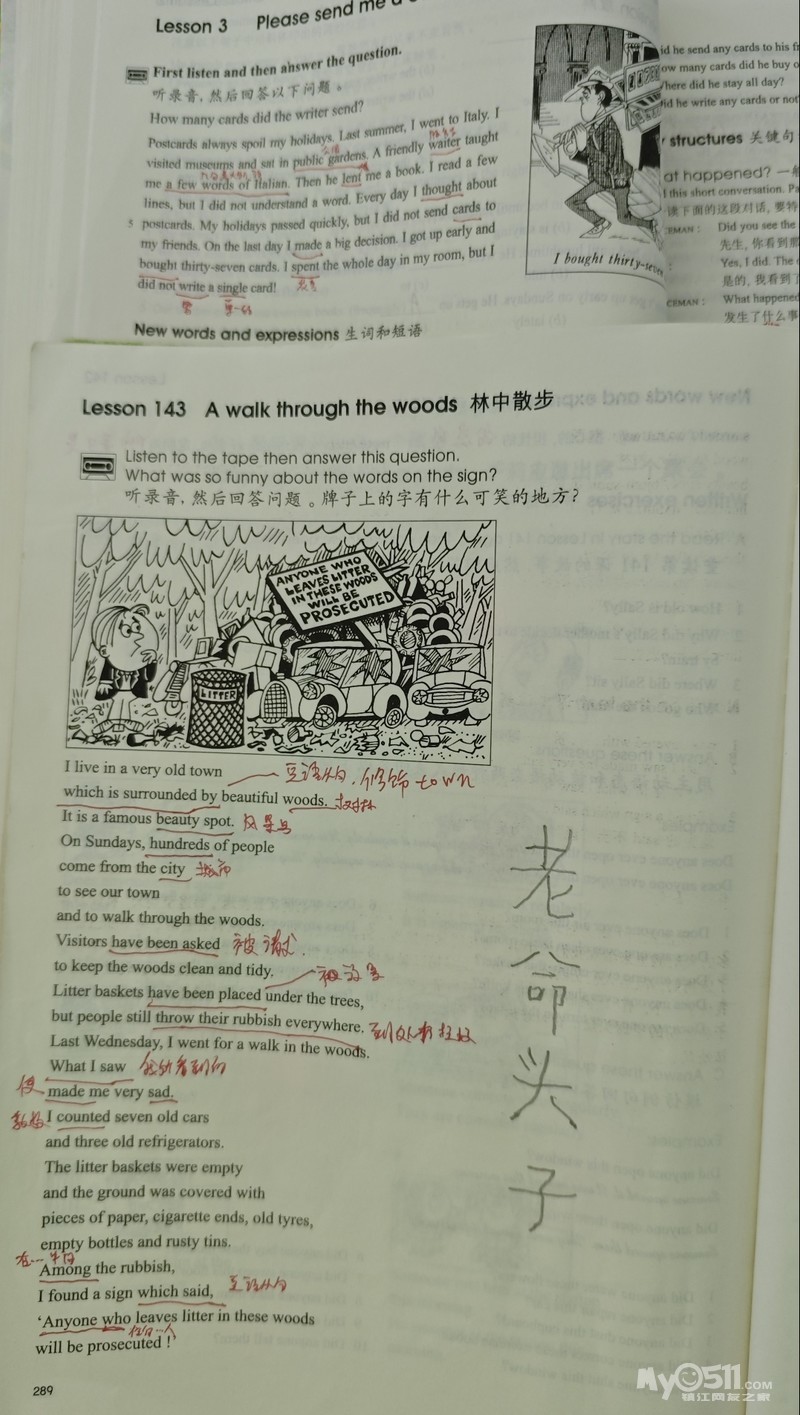 Lesson 3 Please send me a
First listen and then answer the question.
听录音，然后回答以下问题。
How many cards did the writer send?
Postcards always spoil my holidays. Last summer, I went to Italy. I
visited museums and sat in public gardens. A friendly waiter taught
me a few words of Italian. Then he lent me a book. I read a few
lines, but I did not understand a word. Every day I thought about
5 postcards. My holidays passed quickly, but I did not send cards to
my friends. On the last day I made a big decision. I got up early and
bought thirty-seven cards. I spent the whole day in my room, but I
did not write a single card!
New words and expressions 生词和短语
I bought thirty-seven
id he send any cards to his
ow many cards did he buy
here did he stay all day?
id he write any cards or not
structures 关键句
at happened?
this short conversation.
读下面的这段对话，要特
EMAN: Did you see the
先生，你看到那
: Yes, I did. The
是的，我看到了
CEMAN: What happened
发生了什么事
Lesson 143 A walk through the woods 林中散步
Listen to the tape then answer this question.
What was so funny about the words on the sign?
听录音，然后回答问题。牌子上的字有什么可笑的地方？
ANYONE WHO
LEAVES LITTER
IN THESE WOODS
WILL BE
PROSECUTED
LITTER
I live in a very old town 定语从句，修饰town
which is surrounded by beautiful woods. 树林
It is a famous beauty spot. 风景点
On Sundays, hundreds of people
come from the city 城市
to see our town
and to walk through the woods.
Visitors have been asked 被请求.
to keep the woods clean and tidy.
Litter baskets have been placed under the trees,
but people still throw their rubbish everywhere. 到处扔垃圾
Last Wednesday, I went for a walk in the woods.
What I saw 我所看到的
使 made me very sad.
I counted seven old cars
and three old refrigerators.
The litter baskets were empty
and the ground was covered with
pieces of paper, cigarette ends, old tyres,
empty bottles and rusty tins.
在…中间
Among the rubbish,
I found a sign which said, 定语从句
'Anyone who leaves litter in these woods
任何一人
will be prosecuted!'
289
老
爷
头
子
My0511.COM
镇江网友之家